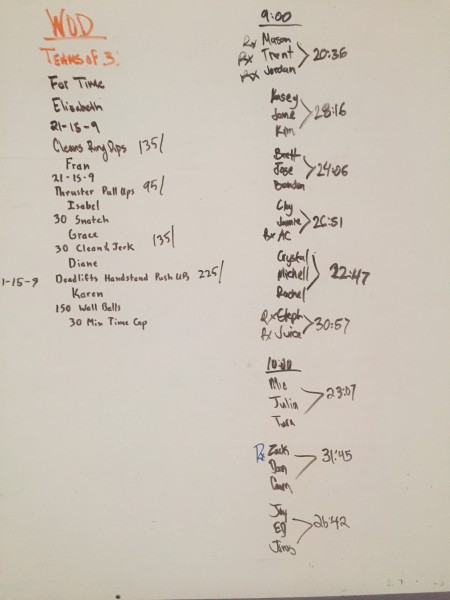 WOD
TEAMS OF 3:
For Time
Elizabeth
21-15-9
Cleans Ring Dips 135/
Fran
21-15-9
Thruster Pull Ups 95/
Isabel
30 Snatch
Grace
30 Clean & Jerk 135/
Diane
1-15-9 Deadlifts Handstand Push UPs 225/
Karen
150 Wall Balls
30 Min Time Cap
9:00
Rx Mason
Rx Trent 20:36
Rx Jordan
Kasey
Jame 28:16
Kim
Brett
Jose 24:06
Brandon
Clay
Jamie 26:51
Rx AC
Crystal
Michell 22:47
Rachel
Rx Steph
Rx Juice 30:57
10:00
Mie
Julia 23:07
Tara
Rx Zack
Dan 31:45
Cam
Jay
Ed 26:42
Jims